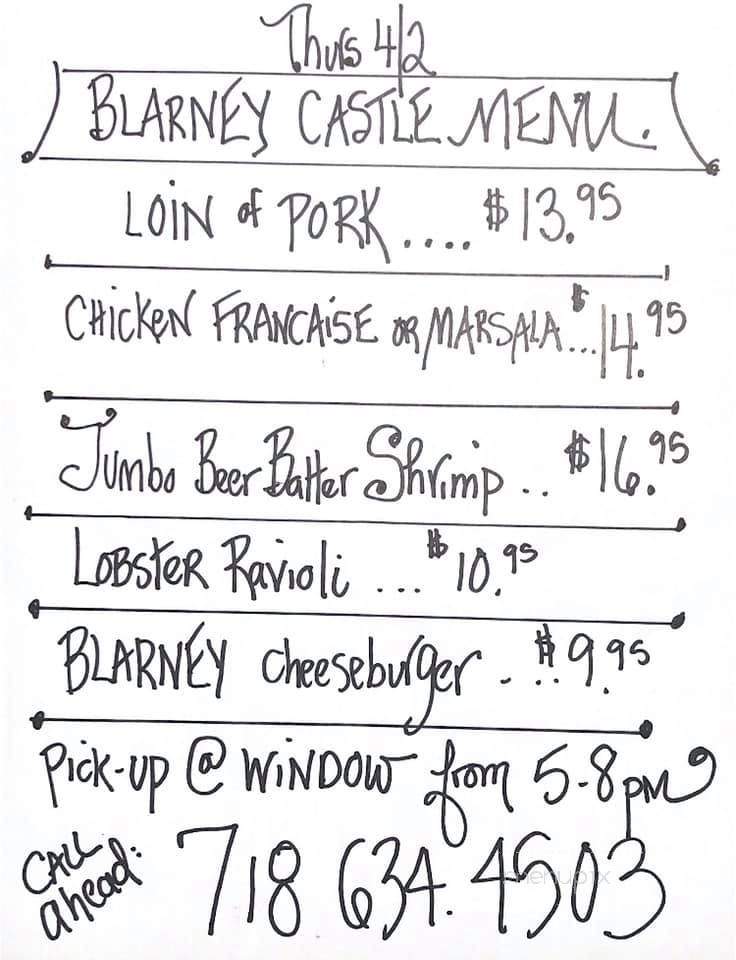 Thurs 4/2
BLARNEY CASTLE MENU.
LOIN of PORK .... $13.95
CHICKEN FRANCAISE OR MARSALA ... $14.95
Jumbo Beer Batter Shrimp .. $16.95
LOBSTER Ravioli ... $10.95
BLARNEY cheeseburger - .. $9.95
Pick-up @ WINDOW from 5-8pm
CALL ahead: 718 634.4503
menupix